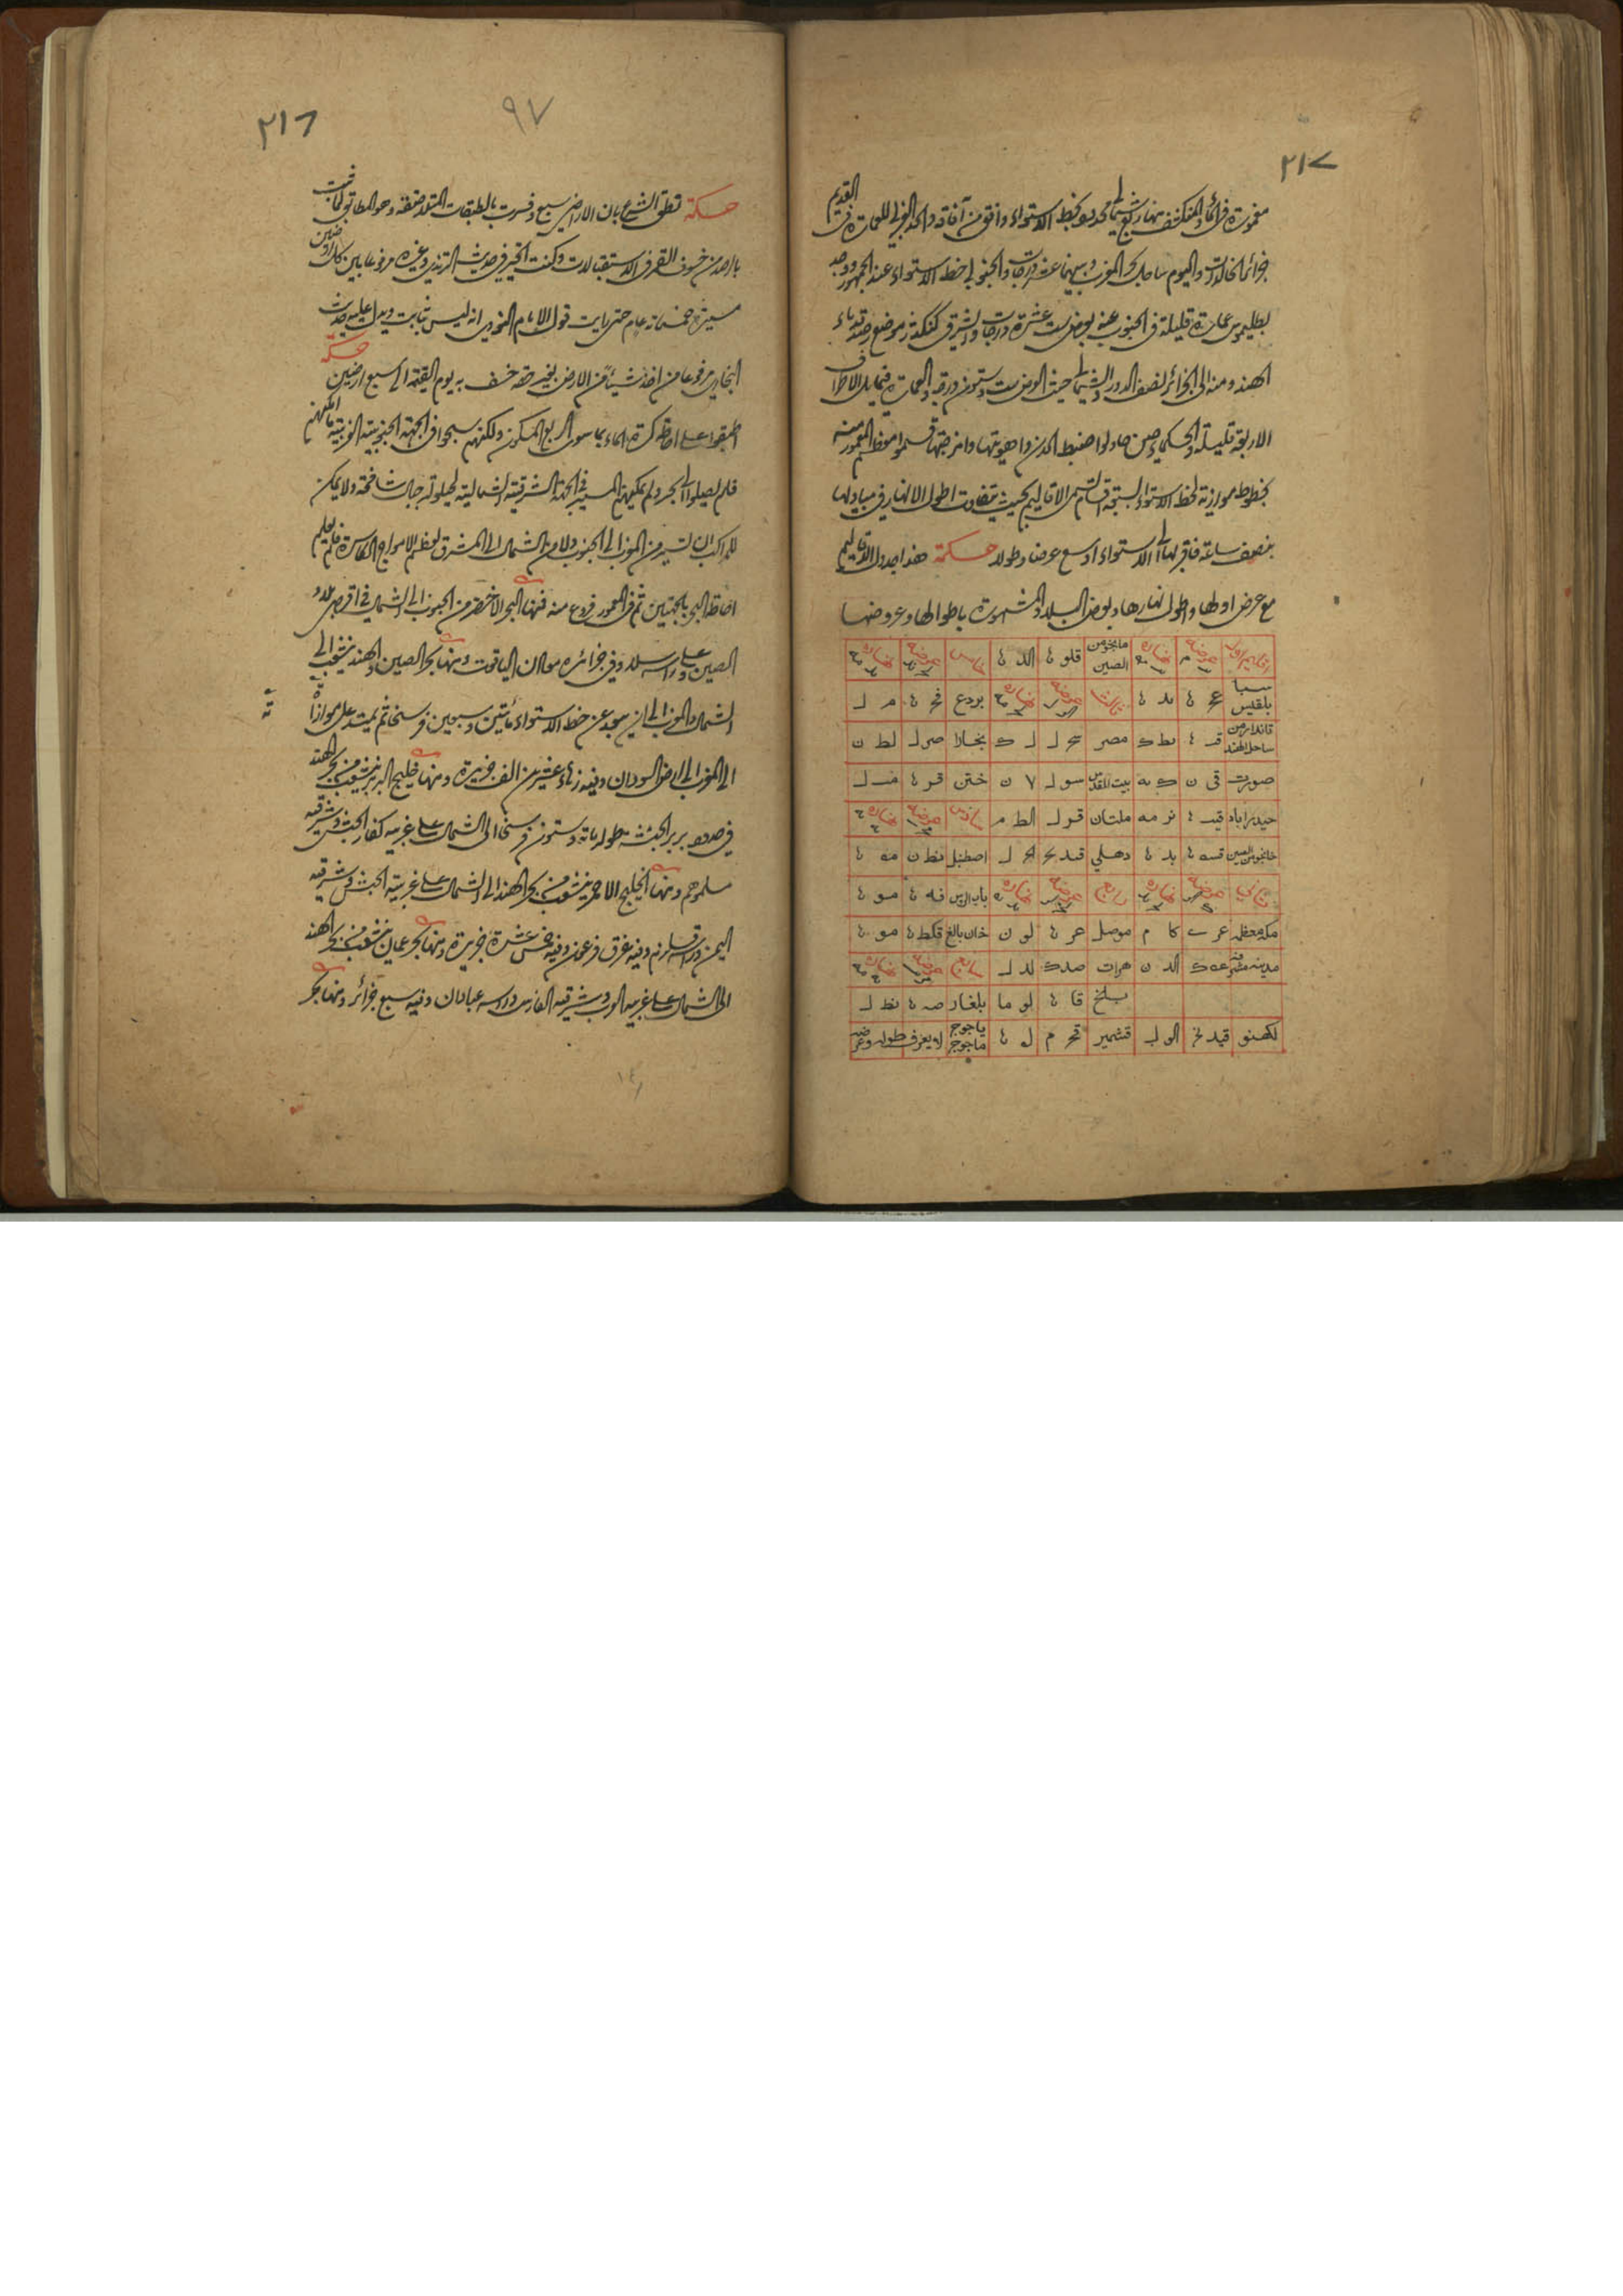 ٢١٧
مغمورة في الماء والمنكشف منها ربع شمالي محدود بخط الاستواء وافق من آفاقه والحد الغربي للعمارة في القديم
جزائر الخالدات واليوم ساحل بحر المغرب وبينهما عشر درجات والجنوبي خط الاستواء عند الجمهور ووجد
بطليموس عمارة قليلة في الجنوب عنه بعرض ست عشرة درجات والشرقي كنكدز موضع رصد قدماء
الهند ومنه الى الجزائر نصف الدور والشمالي حيث العرض ست وستون درجة والعمارة فيما يلي الاطراف
الاربعة قليلة والحكماء حين حاولوا ضبط المدن واهويتها وامزجتها قسموا معظم المعمور منه
بخطوط موازية لخط الاستواء لسبعة اقسام تسمى الاقاليم بحيث يتفاوت اطول الانهار في مباديها
بنصف ساعة فاقربها الى الاستواء اوسع عرضا وطولا حكمة هذا جدول الاقاليم
مع عرض اولها واطول نهارها وبعض البلاد المشهورة باطوالها وعروضها
اقليم اول عرضه نهاره مابجو من الصين قلو ها الد ها خامس عرضه نهاره
سبا بلقيس عح ها ىد ها ثالث عرضه نهاره بردع فح ها م لـ
ساحل الهند قـ ها ىط ك مصر سح لـ لـ ك بخارا صر لـ لط ن
صورت قى ن ك ىه بيت المقدس سو لـ ن ختن قر ها مـ لـ
حيدراباد قيـ ها نر مه ملتان قر لـ الط م سادس عرضه نهاره
خانجو من الصين قسه ها ىد ها دهلي قىد لح لح لـ اصطنبل نط ن مه ها
ثاني عرضه نهاره رابع عرضه نهاره باب الابواب فه ها مو ها
مكه معظمه عر ى كا م موصل عر ها لو ن خان بالغ قكط ها مو ها
مدينه ك الد ن هرات صد ك لد لـ سابع عرضه نهاره
بلخ قا ها لو ما بلغار صه ها نط لـ
لكهنو قيد لح الو ل قشمير قح م له ها ياجوج ماجوج لا يعرف طوله وعرضه
٢١٦
٩٧
حكمة نطق الشرع بان الارضين سبع وفسرت بالطبقات المتلاصقة وهو المطابق لما ثبت
بالرصد من خسوف القمر في الاستقبالات وكنت اتحير في حديث الترمذي وغيره مرفوعا بين كل ارضين
مسيرة خمسمائة عام حتى رايت قول الامام النووي انه ليس بثابت ويدل عليه حديث
البخاري مرفوعا من اخذ شيئا من الارض بغير حقه خسف به يوم القيمة الى سبع ارضين حكمة
اطبقوا على احاطة كرة الماء بما سوى الربع المسكون ولكنهم سبحوا في الجهة الجنوبية الغربية ما امكنهم
فلم يصلوا الى البحر ولم يمكنهم المسير في الجهة الشرقية الشمالية لحيلولة جبال شامخة ولا يمكن
للمراكب ان تسير من المغرب الى الجنوب ولا من الشمال الى المشرق لعظم الامواج الكاسرة فلم يعلم
احاطة البحر بالجهتين ثم في المعمور فروع منه فمنها البحر الاخضر من الجنوب الى الشمال في اقصى بلاد
الصين وعلى راسه بلاد وفي جزائره معادن الياقوت ومنها بحر الصين والهند ينشعب الى
الشمال والمغرب الى ان يبعد عن خط الاستواء مأتين وسبعين فرسخا ثم يمتد على موازاته
الى المغرب الى ارض السودان وفيه زهاء عشرين الف جزيرة ومنها خليج البربر ينشعب من بحر الهند
في حدود بربر الحبشة طوله مائة وستون فرسخا الى الشمال على غربيه كفار الحبش وشرقيه
مسلموهم ومنها الخليج الاحمر ينشعب من بحر الهند الى الشمال على غربيه الحبش وشرقيه
اليمن وراسه قلزم وفيه غرق فرعون وفيه خمس عشرة جزيرة ومنها بحر عمان ينشعب من بحر الهند
الى الشمال على غربيه العرب وشرقيه الفارس وراسه عبادان وفيه سبع جزائر ومنها بحر